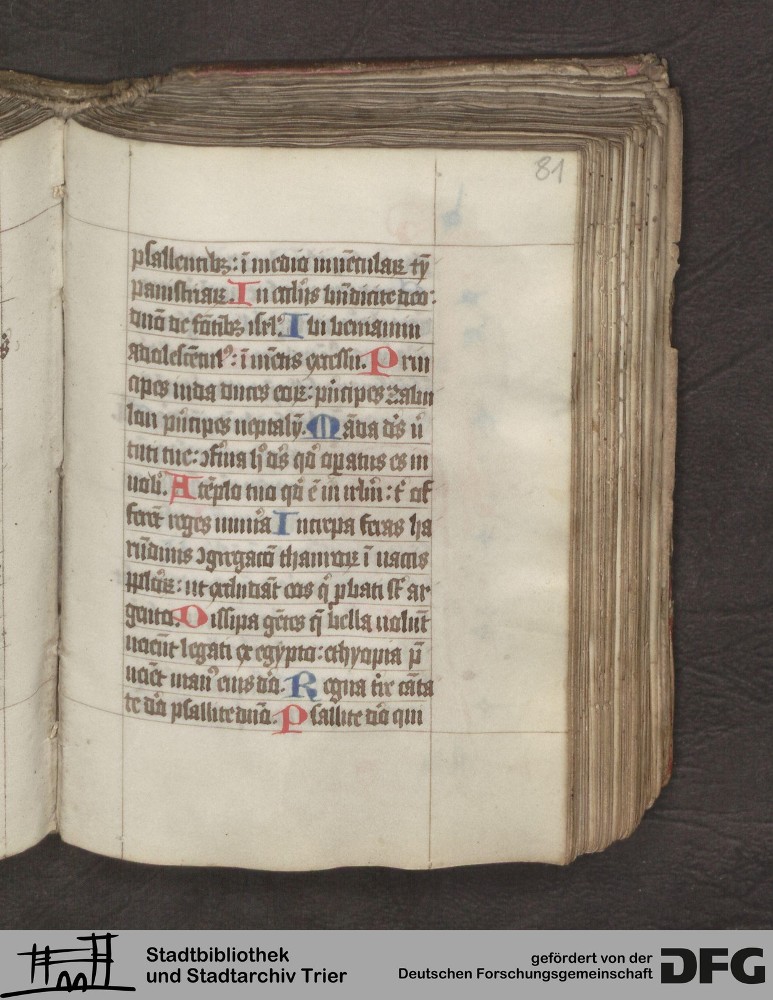 81
psallentibꝫ : ī medio iuuēculaꝝ tȳ
panistriaꝝ . In eccl'ijs bn̄dicite deo :
dn̄o de fōtibꝫ isrl' . Ibi beniamin
adolescētul' : ī mētis excessu . Prin
cipes iuda duces eoꝝ : pͥncipes zabu
lon pͥncipes neptalȳ . Māda dš ũ
tuti tue : ꝯfirma h̥ dš qd̛ opatus es in
nob̛ . A tēplo tuo qd̛ ē in irl'm : tͥ of
ferēt reges mun̄a Increpa feras ha
rūdinis ꝯgregacō thauroꝝ ī uaccis
ppl'oꝝ : ut excludāt eos qͥ ꝓbati st̄ ar
gento . Dissipa gētes q̄ bella uolūt
uēiēt legati ex egypto : ethyopia p̄
ueīet man' eius dō . Regna tr̄e cāta
te dō psallite dn̄o . Psallite dō qui
Stadtbibliothek
und Stadtarchiv Trier
gefördert von der
Deutschen Forschungsgemeinschaft
DFG